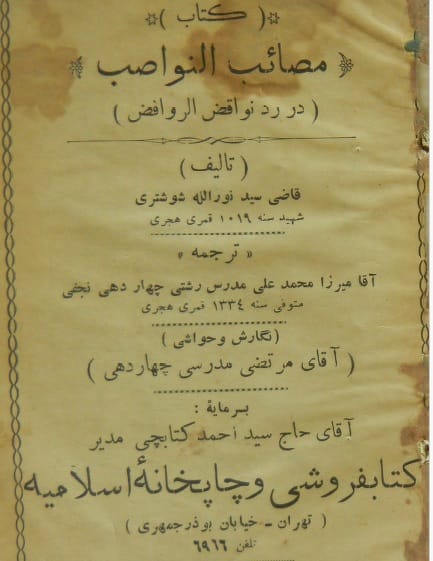 ( کتاب )
مصائب النواصب
( در رد نواقض الروافض )
( تالیف )
قاضی سید نورالله شوشتری
شهید سنه ۱۰۱۹ قمری هجری
« ترجمه »
آقا میرزا محمد علی مدرس رشتی چهاردهی نجفی
متوفی سنه ۱۳۳٤ قمری هجری
(نگارش و حواشی )
( آقای مرتضی مدرسی چهاردهی )
بـرمایهٔ :
آقای حاج سید احمد کتابچی مدیر
کتابفروشی و چاپخانهٔ اسلامیه
( تهران - خیابان بوذرجمهری )
تلفن ٦٩٦٦